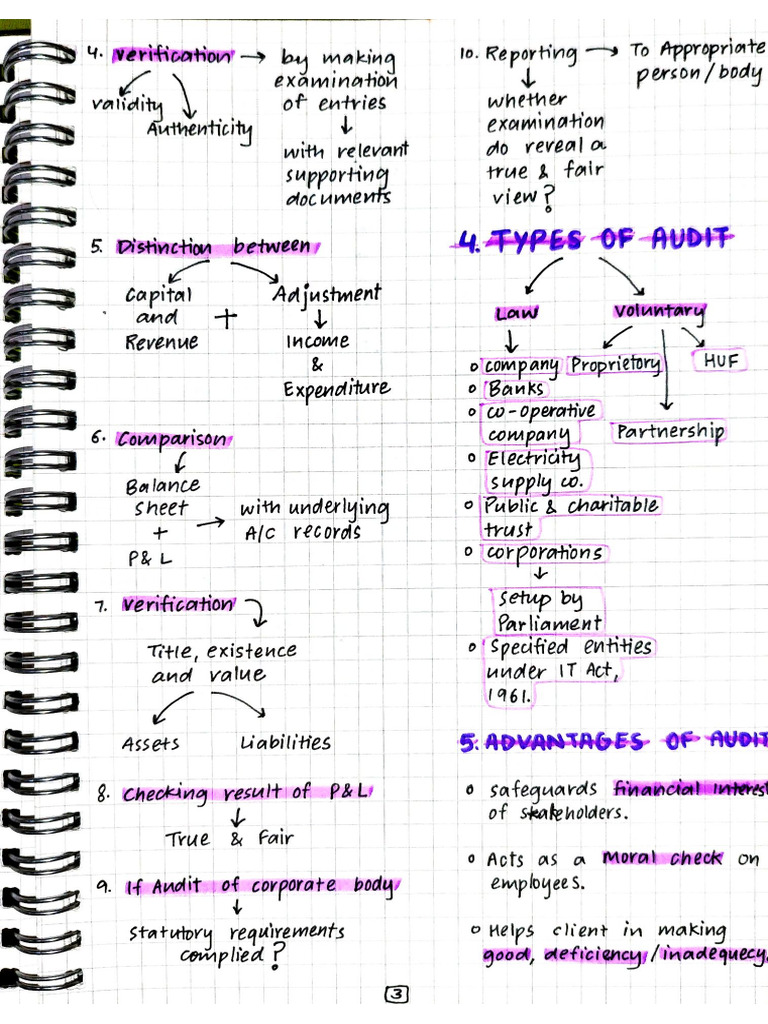 4. Verification → by making
examination
of entries
validity
Authenticity
with relevant
supporting
documents
5. Distinction between
Capital
and
Revenue
+
Adjustment
Income
&
Expenditure
6. Comparison
Balance
sheet
+
P&L
→ with underlying
A/C records
7. Verification
Title, existence
and value
Assets
Liabilities
8. Checking result of P&L
True & Fair
9. If Audit of corporate body
Statutory requirements
complied?
3
10. Reporting → To Appropriate
person/body
whether
examination
do reveal a
true & fair
view?
4. TYPES OF AUDIT
Law
company
Banks
co-operative
company
Electricity
supply co.
Public & charitable
trust
corporations
setup by
Parliament
Specified entities
under IT Act,
1961.
Voluntary
Proprietory
HUF
Partnership
5. ADVANTAGES OF AUDIT
safeguards financial interest
of stakeholders.
Acts as a Moral check on
employees.
Helps client in making
good, deficiency/inadequecy,